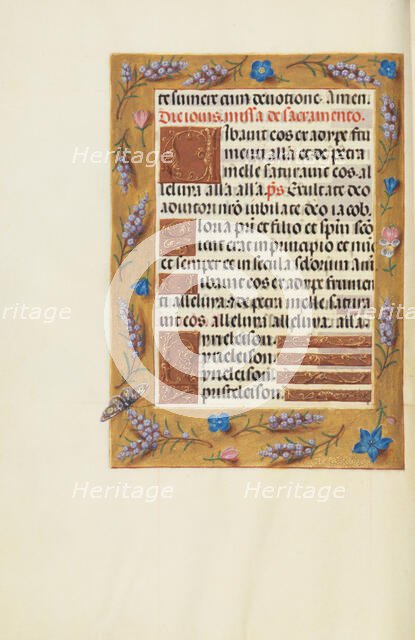 te sumere cum deuotione. Amen.
Die iouis missa de sacramento.
Cibauit eos ex adype fru
menti alla et de petra
melle saturauit eos. al
leluia alla alla. ps Exultate deo
adiutori nro iubilate deo iacob.
Gloria pri et filio et spiri sco
Sicut erat in principio et nuc
et semper et in secula seculorum am
Cibauit eos ex adype frumen
ti alleluia et de petra melle satura
uit eos. alleluia. alleluia. alla
Kyrieleison.
Kyrieleison.
Kyrieleison.
Xpisteleison.
Heritage
Heritage
Heritage
Heritage
Heritage
Heritage